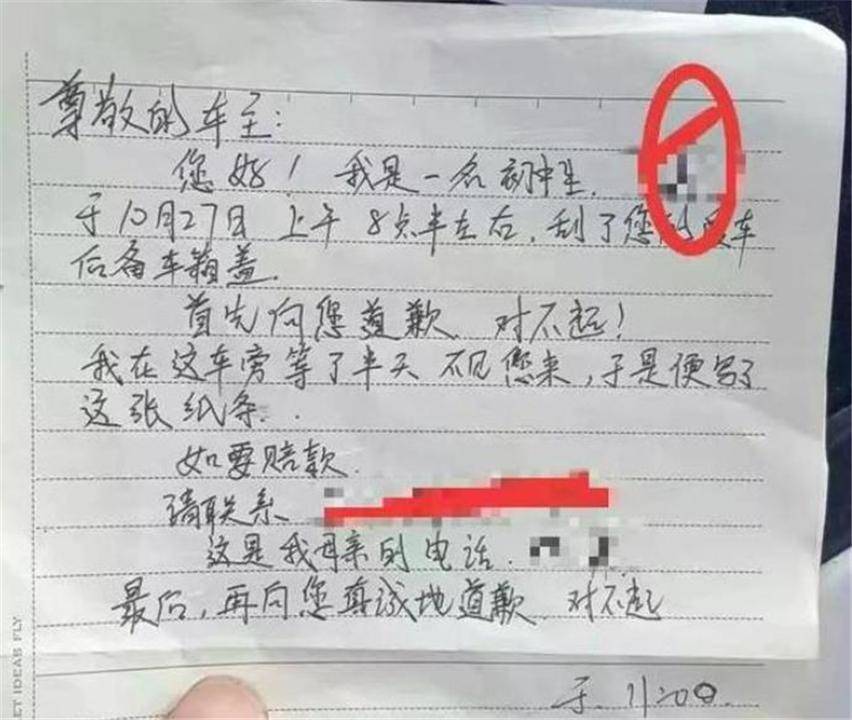 尊敬的车主：
您好！我是一名初中生.
于10月27日上午8点半左右,刮了您的爱车
后备车箱盖.
首先向您道歉.对不起！
我在这车旁等了半天不见您来,于是便写了
这张纸条..
如要赔款.
请联系
这是我母亲的电话.
最后,再向您真诚地道歉.对不起
于.11:00.
ET IDEAS FLY